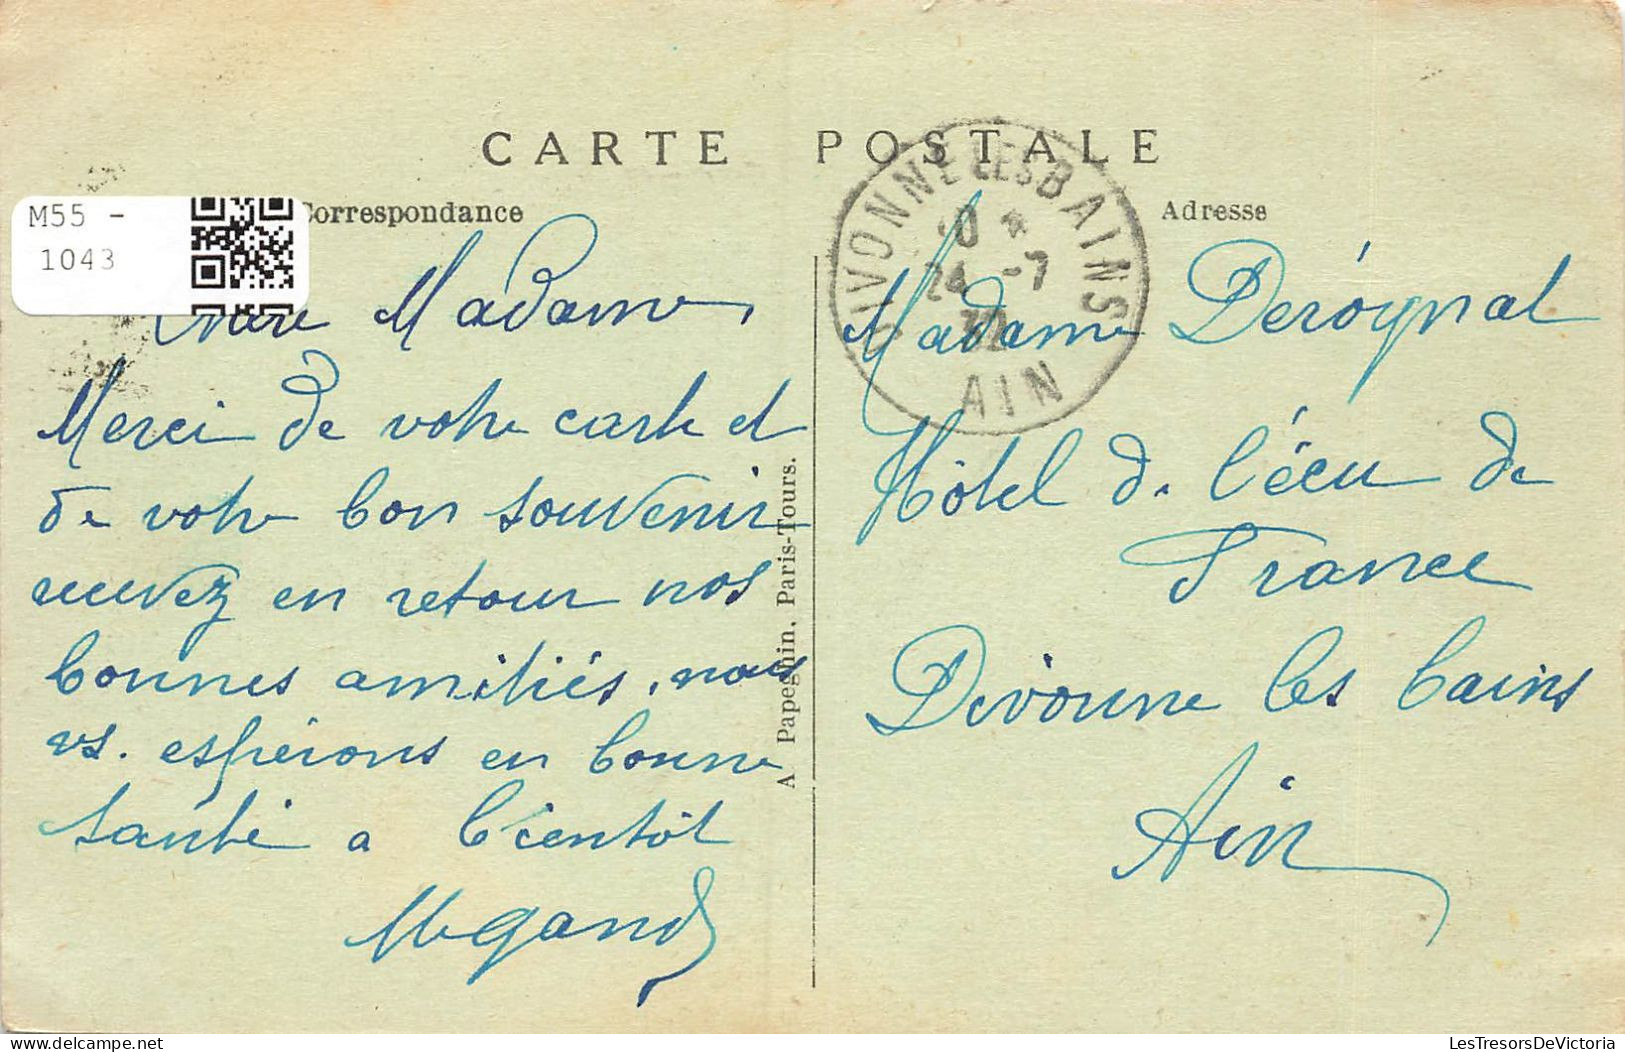 CARTE POSTALE
M55 -
1043
Correspondance
Adresse
DIVONNE LES BAINS
10 *
24 -7
32
AIN
Chère Madame,
Merci de votre carte et
de votre bon souvenir
recevez en retour nos
bonnes amitiés, nous
vs. espérons en bonne
santé a bientôt
Madame Deroynat
Hôtel de l'écu de
France
Divonne les bains
Ain
A Papeghin, Paris-Tours.
delcampe.net
LesTresorsDeVictoria